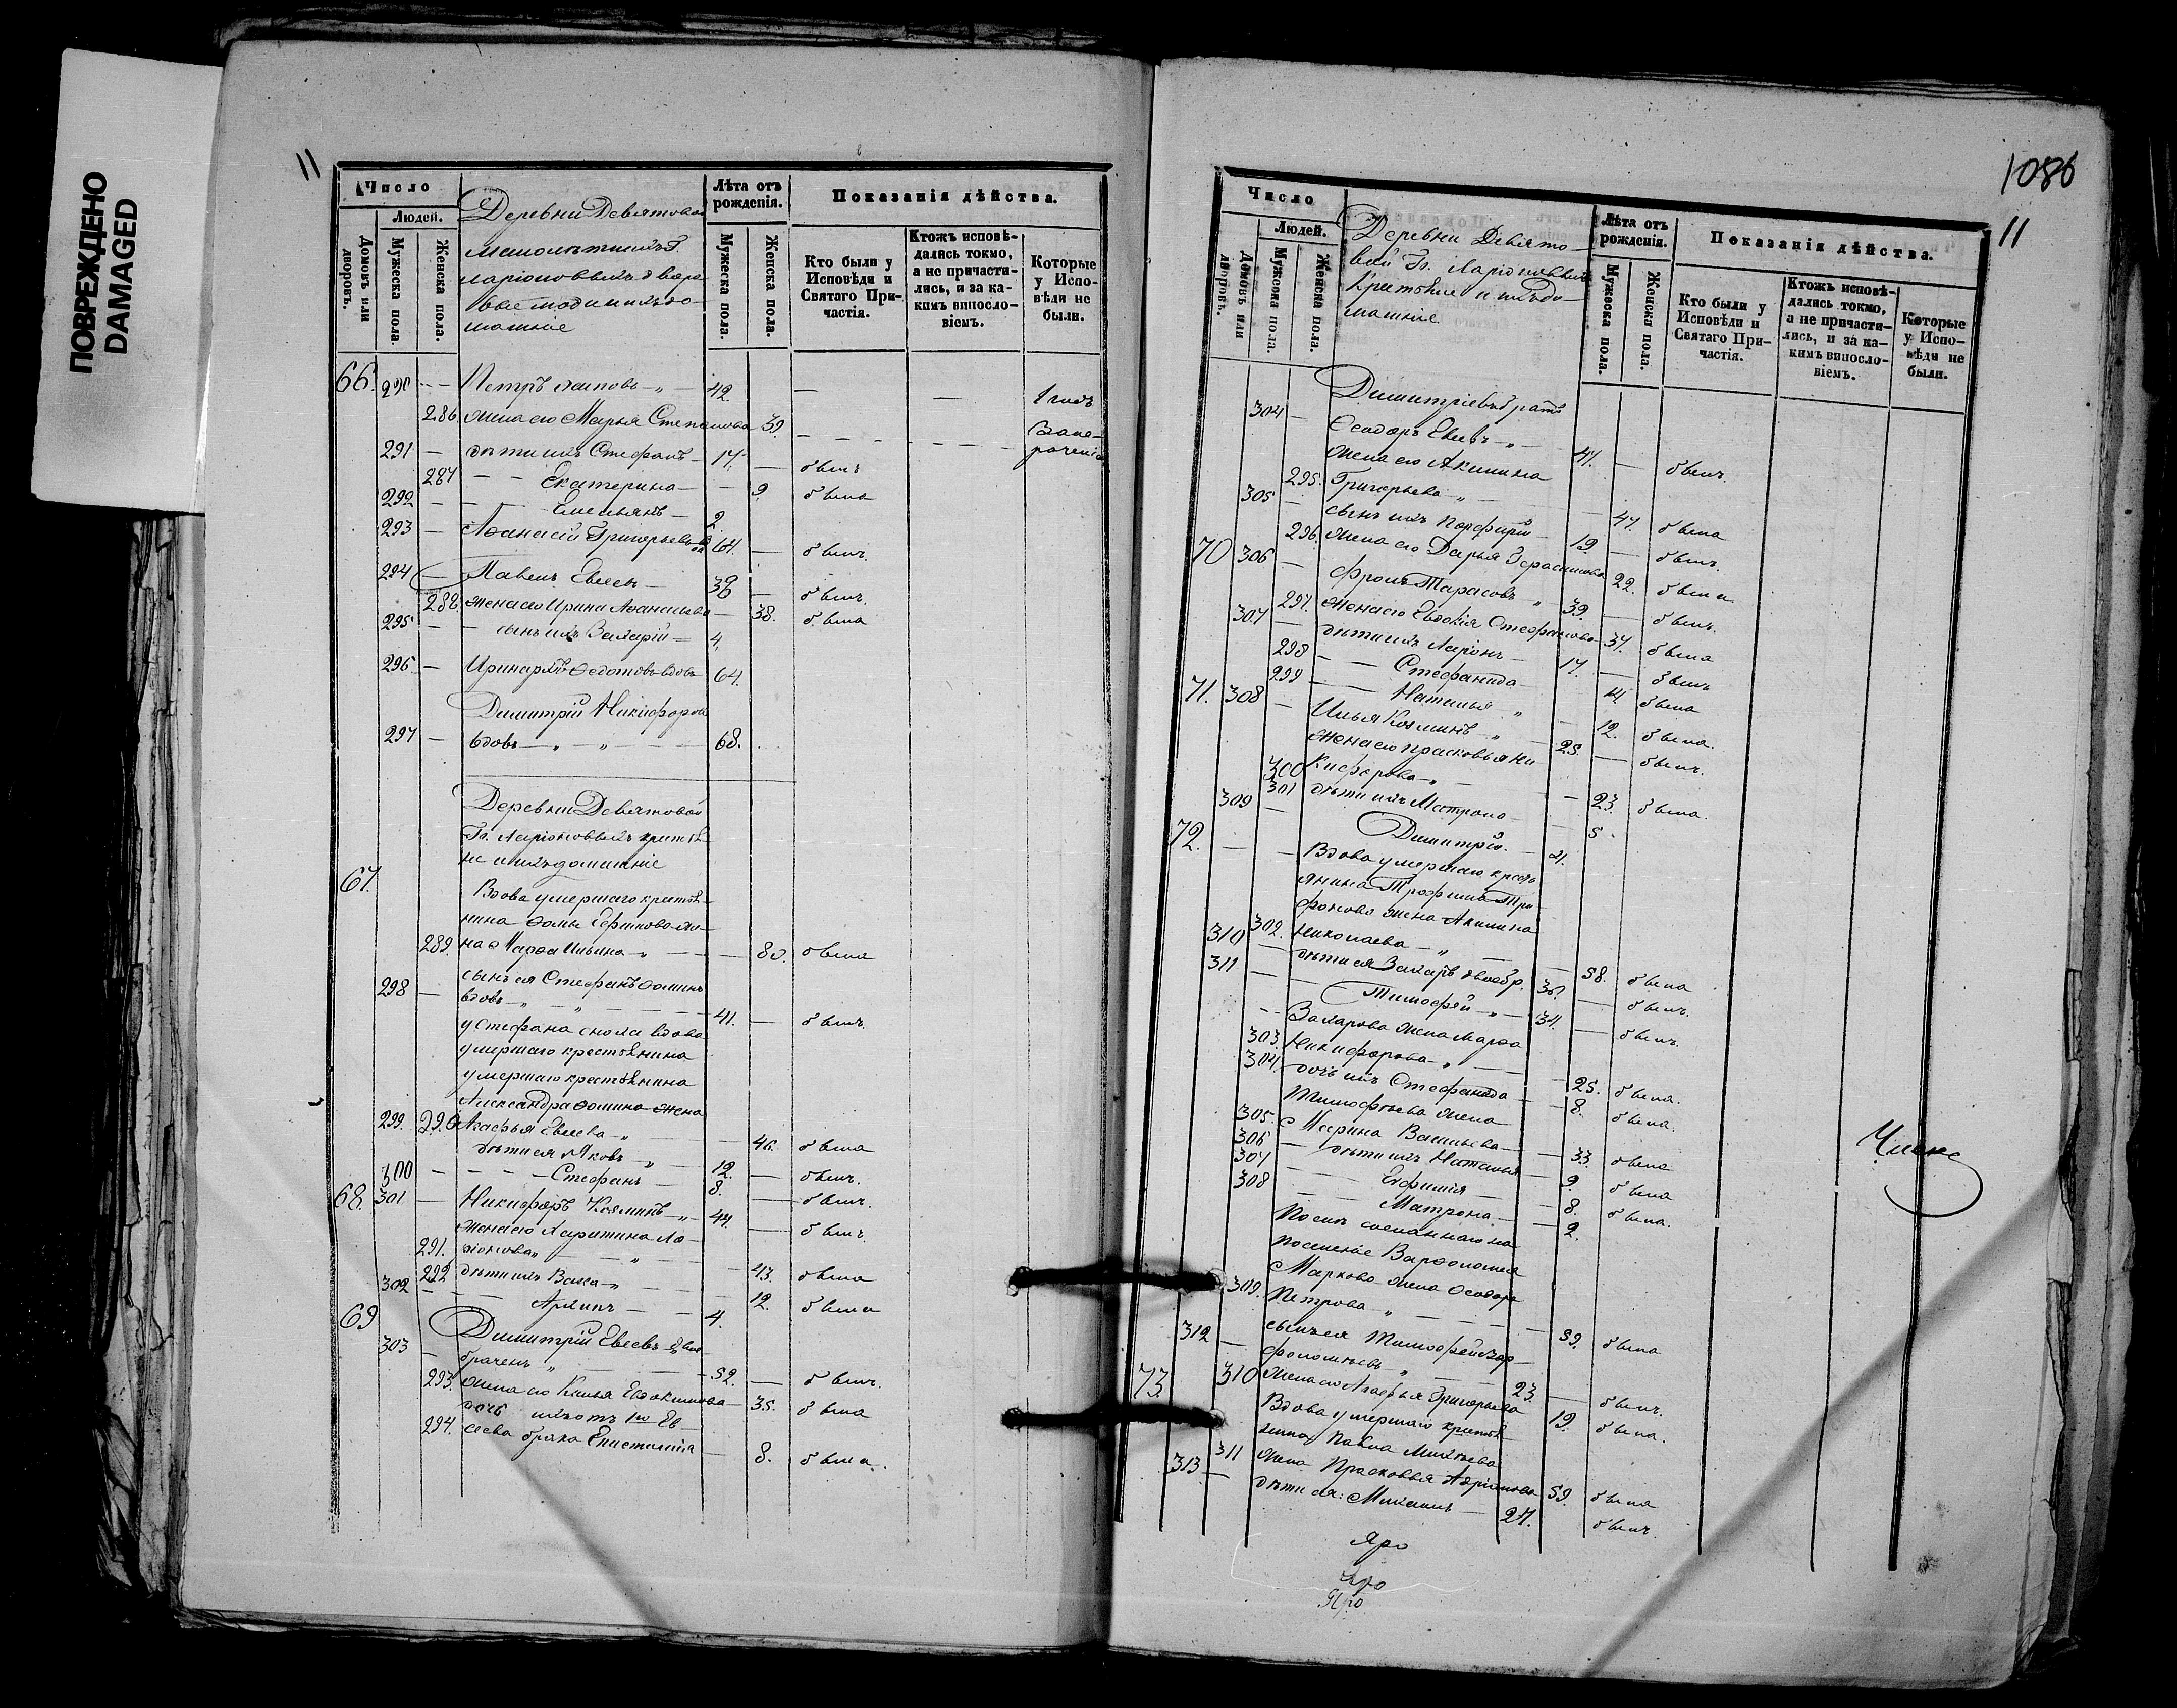 ПОВРЕЖДЕНО
DAMAGED
11
Число
Людей.
Домовъ или дворовъ.
Мужеска пола.
Женска пола.
Деревни Девятовой
Г.
домашніе
Лѣта отъ рожденія.
Мужеска пола.
Женска пола.
Показанія дѣйства.
Кто были у Исповѣди и Святаго Причастія.
Ктожъ исповѣдались токмо, а не причастились, и за какимъ винословіемъ.
Которые у Исповѣди не были.
66. 290 Петръ 42.
286. жена его Марья Степанова 39.
291 дѣти ихъ Стефанъ 17. былъ
287 Екатерина 9 была
292 Емельянъ 2.
293 Аѳанасій Григорьевъ 64. былъ
294 Павелъ Евсеев 38 былъ.
288. жена его Ирина Аѳанасьева 38. была
295 сынъ ихъ Захарій 4.
296 Иринархъ Ѳедотовъ вдовъ 64.
Димитрій Никифоров
297 вдовъ 68.
Деревни Девятовой
Гг. Ларіоновыхъ крестья
не и ихъ домашніе
67. Вдова умершаго крестья
нина Ѳомы Ефимова же
289. на Марѳа Ильина 80. была
сынъ ея Стефанъ Ѳоминъ
298 вдовъ 41. былъ.
у Стефана сноха вдова
умершаго крестьянина
умершаго крестьянина
Александра Ѳомина жена
299. 290 Агафья Евсева 46. была
дѣти ея Яковъ 12. былъ.
300 Стефанъ 8. былъ.
68. 301 Никифоръ Козминъ 44. былъ.
жена его Харитина Ла
291. ріонова 43. была
292 дѣти ихъ Васса 12. была
302 Архипъ 4.
69 Димитрій Евсевъ двое
303 браченъ 52. былъ.
293. жена его Евдокимова 35. была
дочь ихъ отъ 1го Ев
294. сева брака Епистимія 8. была.
1086
11
Число
Людей.
Домовъ или дворовъ.
Мужеска пола.
Женска пола.
Деревни Девято
вой Гг. Ларіоновыхъ
Крестьяне и ихъ до
машніе.
Лѣта отъ рожденія.
Мужеска пола.
Женска пола.
Показанія дѣйства.
Кто были у Исповѣди и Святаго Причастія.
Ктожъ исповѣдались токмо, а не причастились, и за какимъ винословіемъ.
Которые у Исповѣди не были.
Димитріевъ братъ
304 Ѳеодоръ Евсевъ 47. былъ.
жена его Акилина
295. Григорьева 47. была
305 сынъ ихъ Порфирій 19 былъ.
296. жена его Дарья Герасимова 22. была
70 306 Фролъ Тарасовъ 39. былъ.
297. жена его Евдокія Стефанова 37. была
307 дѣти ихъ Ларіонъ 17. былъ
298 Стефанида 14 была
299 Наталья 12. была.
71. 308 Илья Козминъ 25. былъ.
жена его Прасковья Ни
300 кифорова 23. была.
301 дѣти ихъ Матрона 5.
309 Димитрій.
72. Вдова умершаго кресть
янина Трофима Три
фонова жена Акилина
302. Николаева 58. была
310 дѣти ея Захаръ двоебр. 36. былъ.
311 Тимофей 34. былъ.
Захарова жена Марѳа
303. Никифорова 25. была.
304. дочь ихъ Стефанида 8. была.
Тимофеева жена
305. Марина Васильева 33. была
306 дѣти ихъ Наталья 9. была
307 Евфимія 8. была.
308 Матрона 2.
После сосланнаго на
поселеніе Варѳоломея
Маркова жена Ѳеодора
309. Петрова 59. была
312 сынъ ея Тимофей Вар
ѳоломеевъ 23. былъ.
310 жена его Агафья Григорьева 19. была.
73 Вдова умершаго крестья
нина Павла Михеева
311 жена Прасковья 59. была
313 дѣти ея: Михаилъ 27. былъ.
Яро
Яро